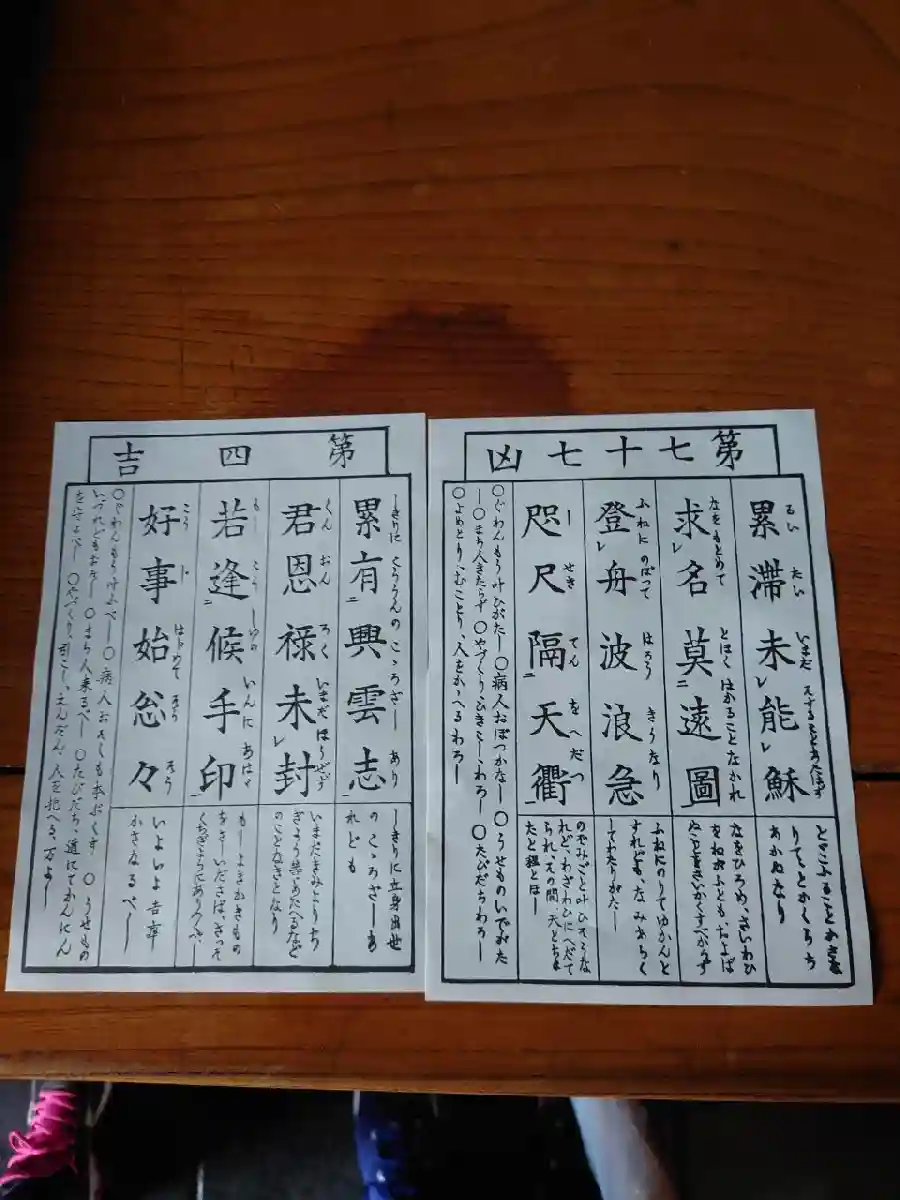 第七十七凶
累滞未能穌
るい たい いまだ
求名莫遠圖
なをもとめて とほくはかることなかれ
登舟波浪急
ふねに のぼつて はろう きうなり
咫尺隔天衢
しせき てん を へだつ
とどこふることかさな
りてとかくらち
あかぬなり
なをひろめ、さいわひ
をねがふとも、およば
ふねにのりてゆかんと
すれども、なみあらく
してわたりがたし
れど、わざわひにへだて
られ、その間、天とちほ
たと程とほし
○ぐわんもう叶ひがたし ○病人おぼつかなし ○うせものいでがた
し ○まち人きたらず ○やづくりひきこしわろし ○たびだちわろし
○よめとり、むことり、人をかゝへるわろし
第四吉
累有興雲志
しきりに くううんの こゝろざし あり
君恩禄未封
くん おん ろく いまだ ほうぜず
若逢候手印
もし こうしゆの いんに あはゞ
好事始忩々
こう じ はじめて そう そう
しきりに立身出世
のこゝろざしあ
れども
いまだきみよりち
ぎよう等、あたへるなど
のことなきとなり
もし、よきかきもの
いよいよ吉事
かさなるべし
○ぐわんもう叶ふべし ○病人おそくも本ぷくす ○うせもの
いづれどもおそし ○まち人来るべし ○たびだち、道にてかんにん
を守るべし ○やづくり、引こし、えんだん、人を抱へる、万よし